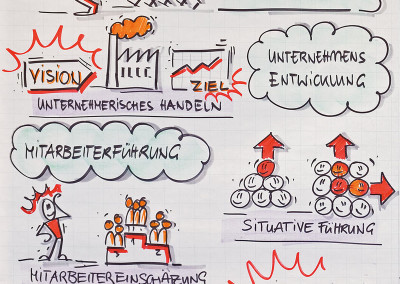 VISION
ZIEL
UNTERNEHMERISCHES HANDELN
UNTERNEHMENS
ENTWICKLUNG
MITARBEITERFÜHRUNG
SITUATIVE FÜHRUNG
MITARBEITEREINSCHÄZUNG